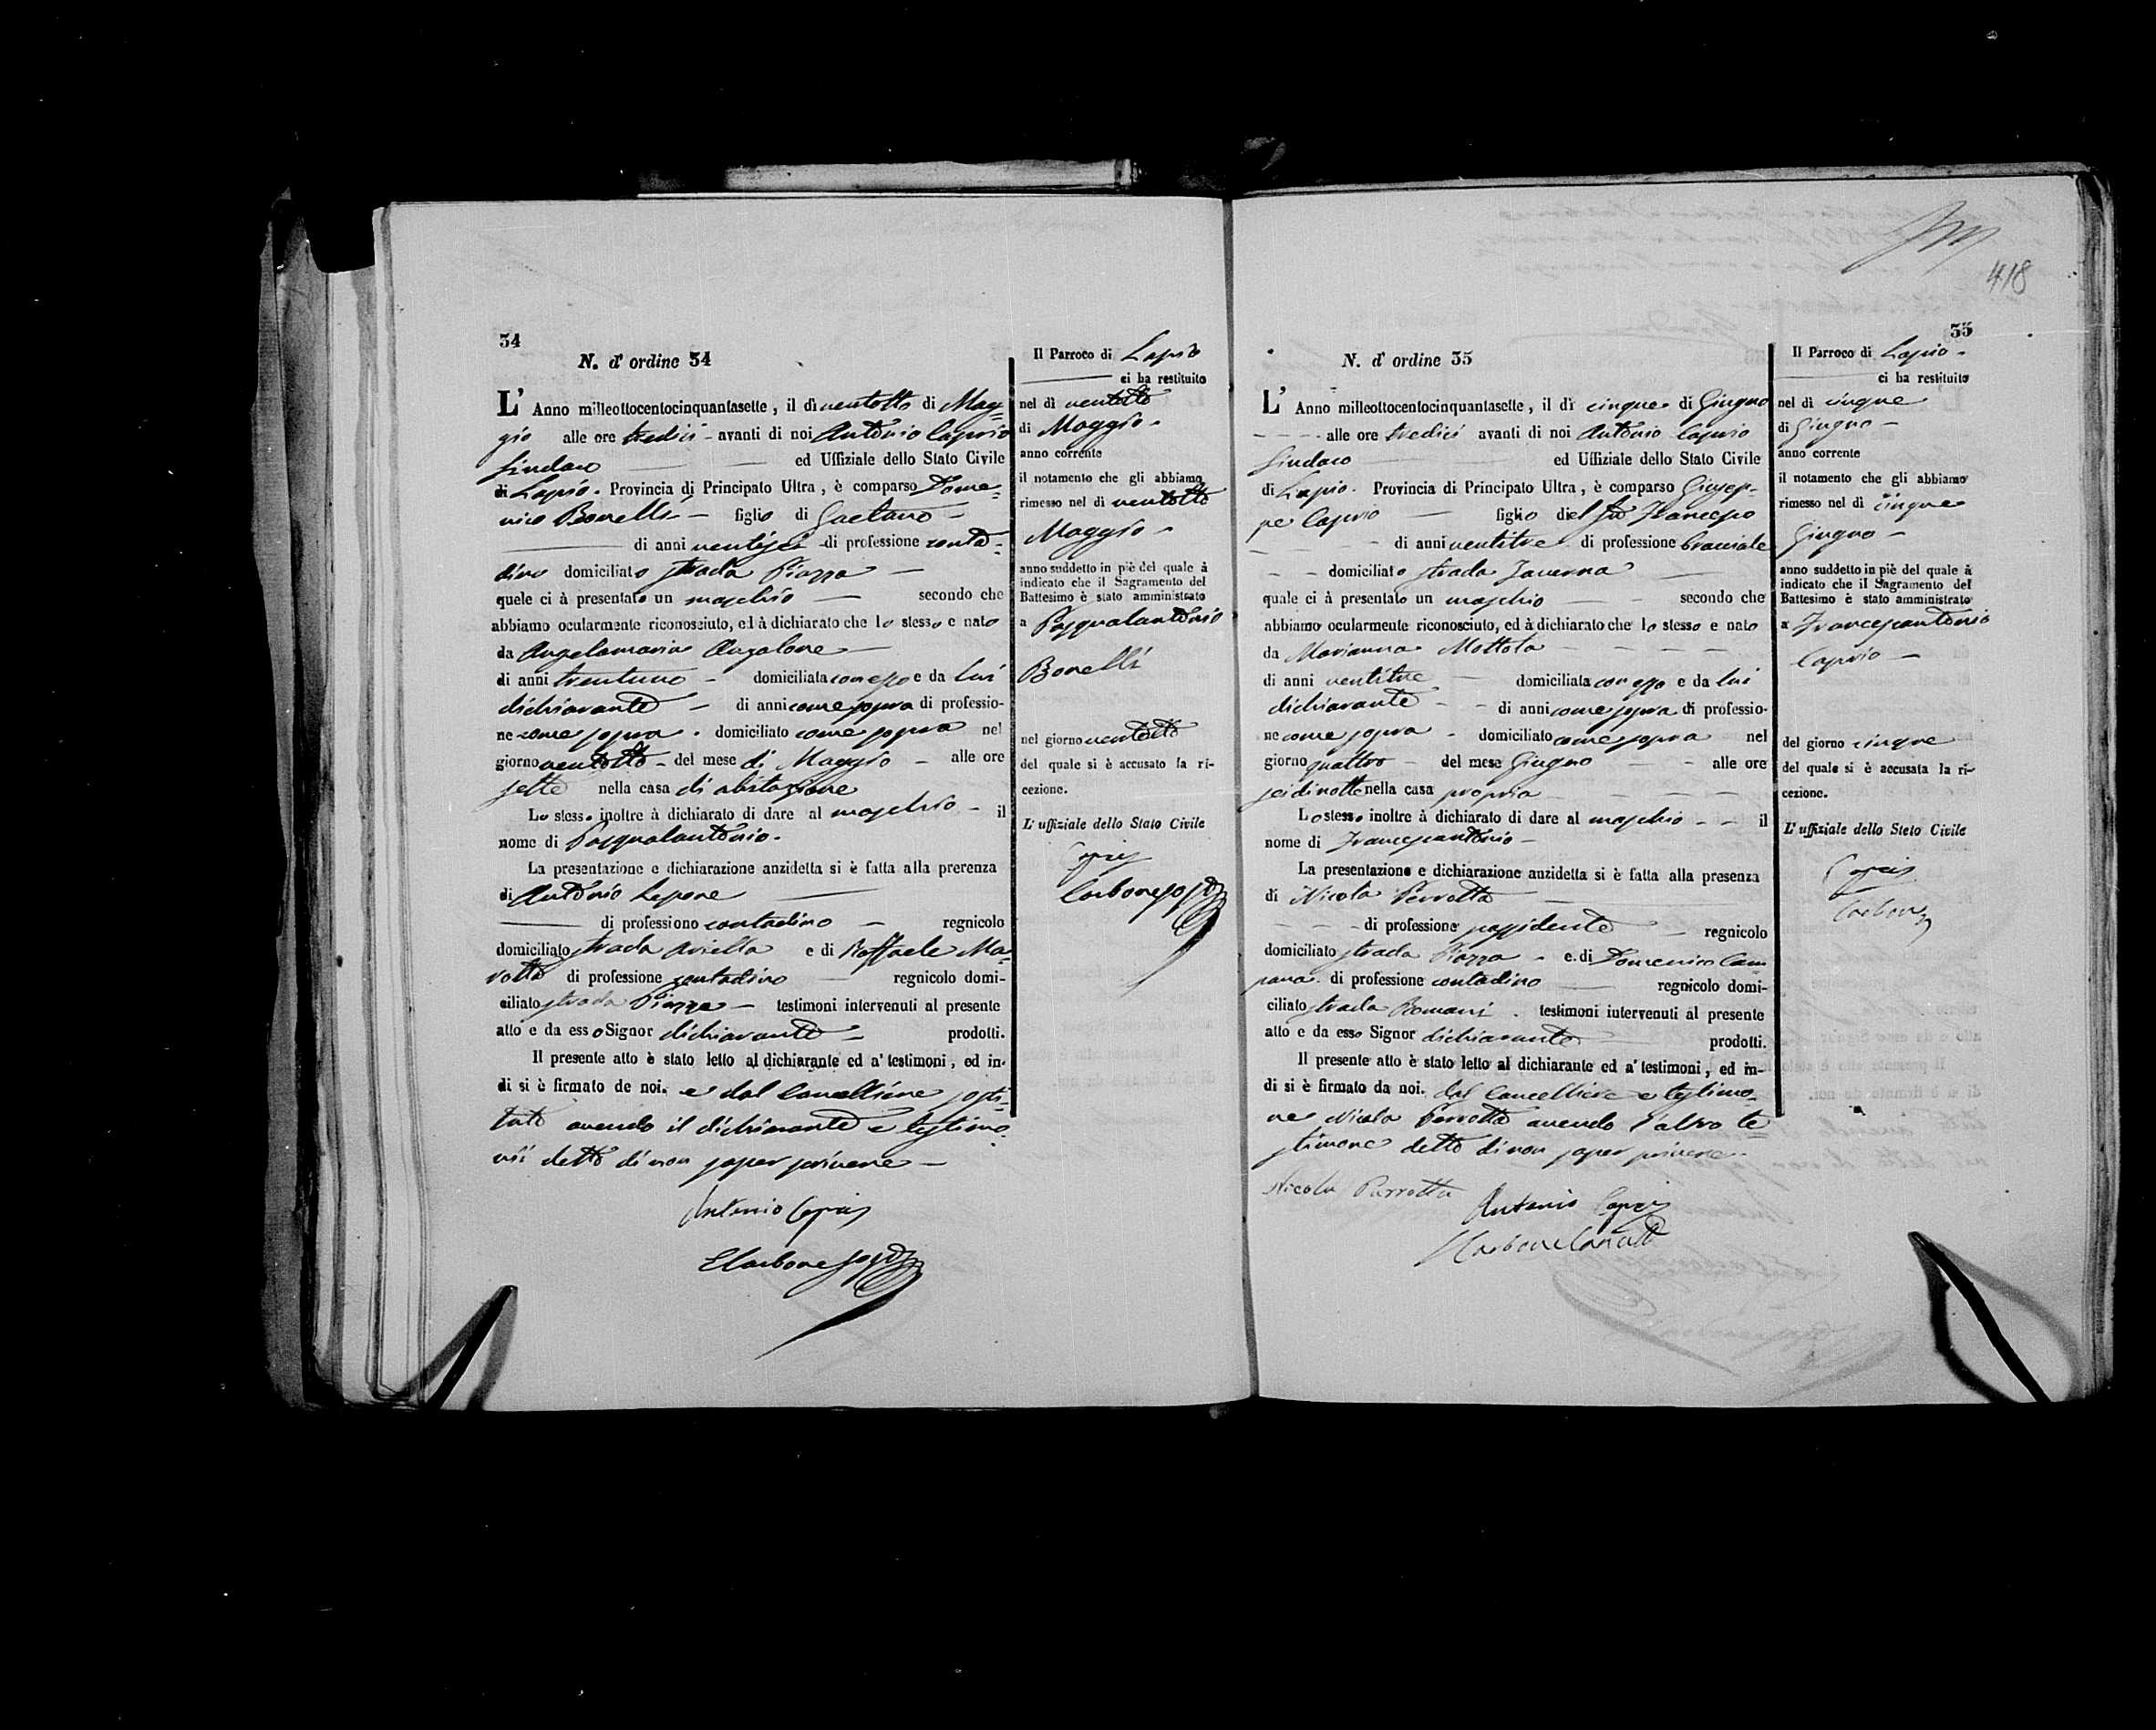 34
N. d' ordine 34
L' Anno milleottocentocinquantasette, il dì ventotto di Mag=
gio alle ore tredici - avanti di noi Antonio Caprio
Sindaco — — ed Uffiziale dello Stato Civile
di Lapio. Provincia di Principato Ultra, è comparso Dome=
nico Bonelli — figlio di Gaetano —
— di anni ventisei - di professione conta=
dino domiciliato strada Piazza —
quele ci à presentato un maschio — secondo che
abbiamo ocularmente riconosciuto, ed à dichiarato che lo stesso e nato
da Angelamaria Anzalone —
di anni trentuno - domiciliata con esso e da lui
dichiarante - di anni come sopra di professio-
ne come sopra . domiciliato come sopra nel
giorno ventotto - del mese di Maggio - alle ore
sette nella casa di abitazione
Lo stesso inoltre à dichiarato di dare al maschio - il
nome di Pasqualantonio.
La presentazione e dichiarazione anzidetta si è fatta alla prerenza
di Antonio Lepore —
— di professiono contadino — regnicolo
domiciliato strada Ariella e di Raffaele Ma=
rotta di professione contadino — regnicolo domi-
ciliato strada Piazza — testimoni intervenuti al presente
atto e da esso Signor dichiarante — prodotti.
Il presente atto è stato letto al dichiarante ed a' testimoni, ed in-
di si è firmato de noi. e dal Cancelliere sosti=
tuto avendo il dichiarante e testimo
nii detto di non saper scrivere —
Antonio Caprio
E Carbone sosto
Il Parroco di Lapio
— ci ha restituito
nel dì ventotto
di Maggio.
anno corrente
il notamento che gli abbiamo
rimesso nel di ventotto
Maggio -
anno suddetto in piè del quale à
indicato che il Sagramento del
Battesimo è stato amministrato
a Pasqualantonio
Bonelli
nel giorno ventotto
del quale si è accusato la ri-
cezione.
L' uffiziale dello Stato Civile
Caprio
Carbone sosto
418
35
N. d' ordine 35
L' Anno milleottocentocinquantasette, il dì cinque di Giugno
- - - - alle ore tredici avanti di noi Antonio Caprio
Sindaco — ed Uffiziale dello Stato Civile
di Lapio. Provincia di Principato Ultra, è comparso Giusep=
pe Caprio — figlio del fu Francesco
- - - - di anni ventitre di professione bracciale
- - domiciliato strada Taverna —
quale ci à presentato un maschio — - secondo che
abbiamo ocularmente riconosciuto, ed à dichiarato che lo stesso e nato
da Marianna Mottola - - - -
di anni ventitre — domiciliata con esso e da lui
dichiarante - - di anni come sopra di professio-
ne come sopra - domiciliato come sopra nel
giorno quattro - del mese Giugno - - alle ore
sei di notte nella casa propria - - - -
Lo stesso inoltre à dichiarato di dare al maschio - - il
nome di Francescantonio —
La presentazione e dichiarazione anzidetta si è fatta alla presenza
di Nicola Perrotta —
- - - di professione possidente — regnicolo
domiciliato strada Piazza - e di Domenico Cam
pana. di professione contadino — regnicolo domi-
ciliato strada Romani . testimoni intervenuti al presente
atto e da esso Signor dichiarante — prodotti.
Il presente atto è stato letto al dichiarante ed a' testimoni, ed in-
di si è firmato da noi. dal Cancelliere e testimo=
ne Nicola Perrotta avendo l'altro te=
stimone detto di non saper scrivere.
Nicola Parrotta Antonio Caprio
Carbone
Il Parroco di Lapio.
— ci ha restituito
nel di cinque
di Giugno —
anno corrente
il notamento che gli abbiamo
rimesso nel di cinque
Giugno —
anno suddetto in piè del quale à
indicato che il Sagramento del
Battesimo è stato amministrato
a Francescantonio
Caprio —
del giorno cinque
del quale si è accusata la ri-
cezione.
L' uffiziale dello Stato Civile
Caprio
Carbone